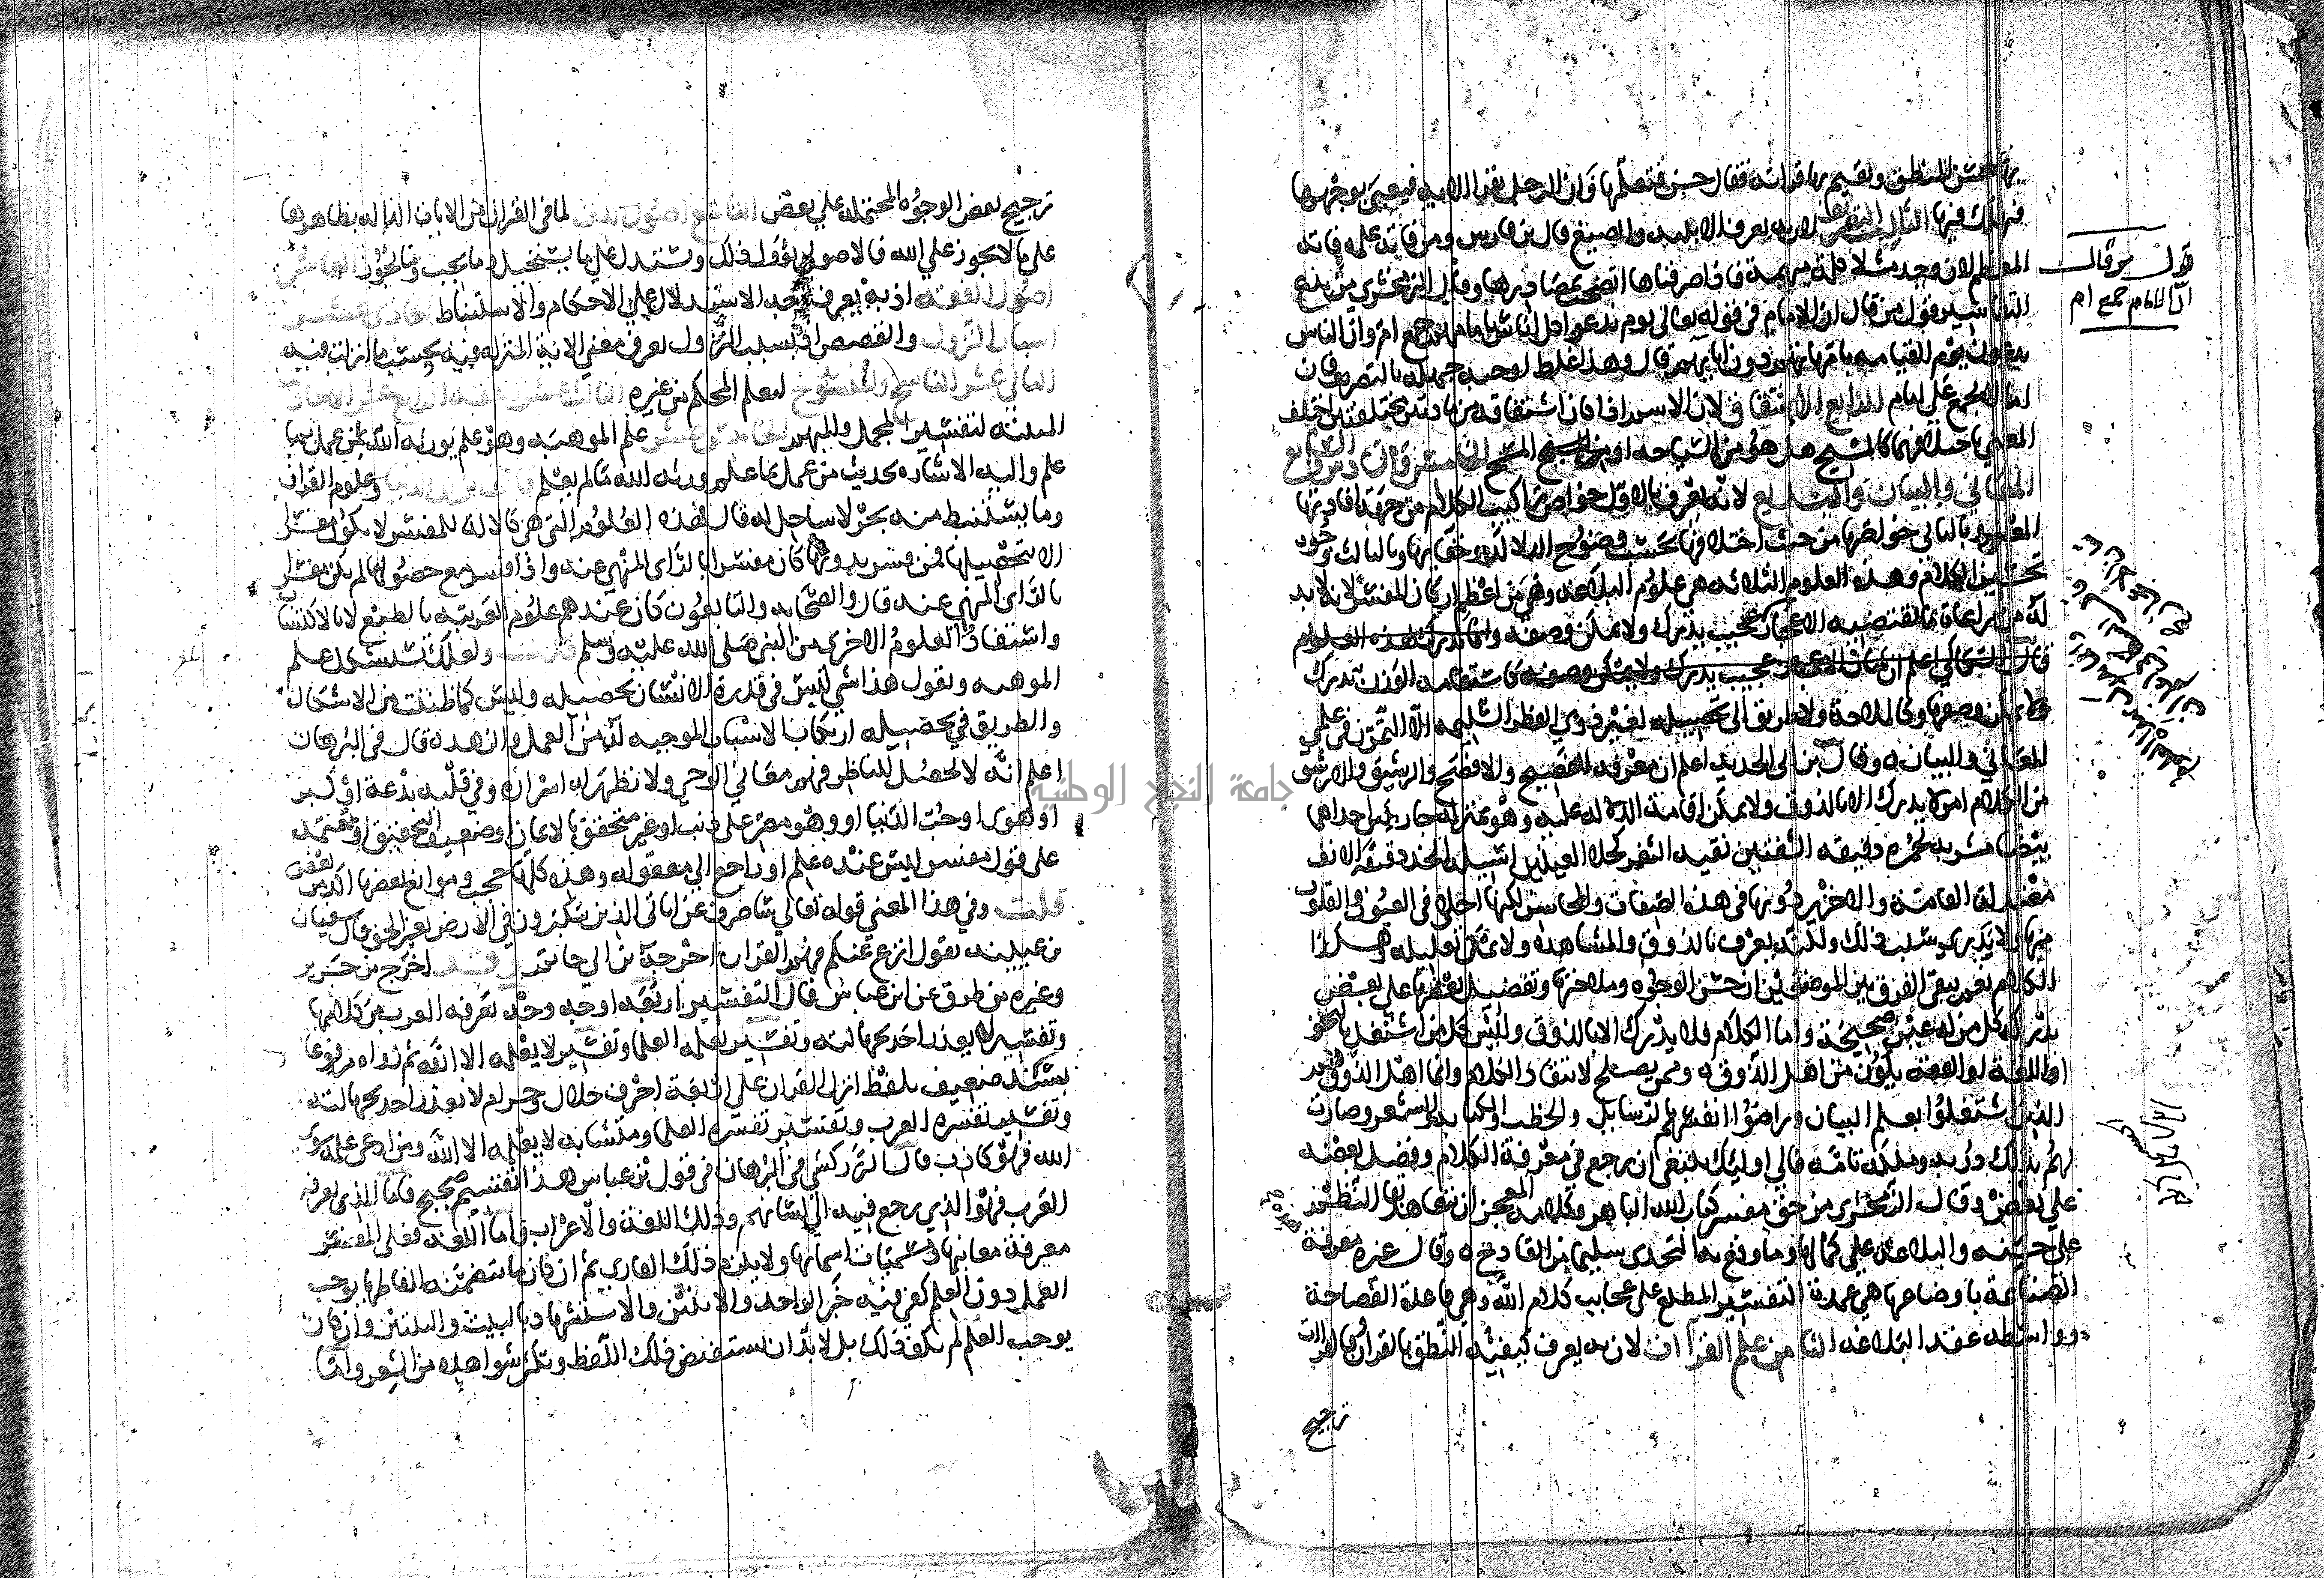 بها حسن المنطق ويقيم بها قراءته فقال حسن فتعلمها فان الرجل يقرا الاية فيعيى بوجهها
فيهلك فيها الثالث التصريف لان به يعرف الابنية والصيغ قال بن فارس ومن فاته علمه فاته
المعظم لان وجد مثلا كلمة مبهمة فاذا صرفناها اتضحت بمصادرها وقال الزمخشري من بدع
التفاسير قول من قال ان الامام في قوله تعالى يوم ندعو كل اناس بامامهم جمع ام وان الناس
يدعون يوم القيامة بامهاتهم دون ابايهم قال وهذا غلط اوجبه جهله بالتصريف فان
اما لا تجمع على امام الرابع الاشتقاق لان الاسم اذا كان اشتقاقه من مادتين مختلفتين اختلف
المعنى باختلافهما كالمسيح هل هو من السياحة او من المسح الخامس والسادس والسابع
المعاني والبيان والبديع لانه يعرف بالاول خواص تراكيب الكلام من جهة افادتها
المعنى وبالثاني خواصها من حيث اختلافها بحسب وضوح الدلالة وخفايها وبالثالث وجوه
تحسين الكلام وهذه العلوم الثلاثة هي علوم البلاغة وهي من اعظم اركان المفسر لانه لا بد
له من مراعاة ما يقتضيه الاعجاز عجيب يدرك ولا يمكن وصفه وانما يدرك بهذه العلوم
قال السكاكي اعلم ان شان الاعجاز عجيب يدرك ولا يمكن وصفه كاستقامة الوزن تدرك
ولا يمكن وصفها وكالملاحة ولا طريق الى تحصيله لغير ذوي الفطر السليمة الا التمرن في علمي
المعاني والبيان ه وقال بن ابي الحديد اعلم ان معرفة الفصيح والافصح والرشيق والارشق
من الكلام امر لا يدرك الا بالذوق ولا يمكن اقامة الدلالة عليه وهو بمنزلة جاريتين احداهما
بيضا مشربة بحمرة دقيقة الشفتين نقية الثغر كحلا العينين اسيلة الخد دقيقة الانف
معتدلة القامة والاخرى دونها في هذه الصفات والمحاسن لكنها احلى في العيون والقلوب
منها ولا يدرى سبب ذلك ولكنه يعرف بالذوق والمشاهدة ولا يمكن تعليله وهكذا
الكلام نعم يبقى الفرق بين الوصفين ان حسن الوجوه وملاحتها وتفضيل بعضها على بعض
يدركه كل من له عين صحيحة واما الكلام فلا يدرك الا بالذوق وليس كل من اشتغل بالنحو
او اللغة او الفقه يكون من اهل الذوق وممن يصلح لانتقاد الكلام وانما اهل الذوق هم
الذين اشتغلوا بعلم البيان وراضوا انفسهم بالرسايل والخطب والكتابة والشعر وصارت
لهم بذلك دربة وملكة تامة فالى اوليك ينبغي ان يرجع في معرفة الكلام وفضل بعضه
على بعض وقال الزمخشري من حق مفسر كتاب الله الباهر وكلامه المعجز ان يتعاهد بقا النظم
على حسنه والبلاغة على كمالها وما وقع به التحدي سليما من القادح ه وقال غيره معرفة
الصناعة باوضاعها هي عمدة التفسير المطلع على عجايب كلام الله وهي قاعدة الفصاحة
وواسطة عقد البلاغة الثامن علم القراات لان به يعرف كيفية النطق بالقرآن وبالقراات
ترجيح
قول من قال
ان الامام جمع ام
ترجيح بعض الوجوه المحتملة على بعض التاسع اصول الدين لما في القران من الايات الدالة بظاهرها
على ما لا يجوز على الله فالاصولي يؤول ذلك ويستدل على ما يستحيل وما يجب وما يجوز العاشر
اصول الفقه اذ به يعرف وجه الاستدلال على الاحكام والاستنباط الحادي عشر
اسباب النزول والقصص اذ بسبب النزول يعرف معنى الاية المنزلة فيه بحسب ما انزلت فيه
الثاني عشر الناسخ والمنسوخ ليعلم المحكم من غيره الثالث عشر الفقه الرابع عشر الاحاديث
المبينة لتفسير المجمل والمبهم الخامس عشر علم الموهبة وهو علم يورثه الله لمن عمل بما
علم واليه الاشارة بحديث من عمل بما علم ورثه الله ما لم يعلم قال ابن ابي الدنيا وعلوم القران
وما يستنبط منه بحر لا ساحل له قال فهذه العلوم التي هي كالالة للمفسر لا يكون مفسرا
الا بتحصيلها فمن فسر بدونها كان مفسرا بالراي المنهي عنه واذا فسر مع حصولها لم يكن مفسرا
بالراي المنهي عنه قال والصحابة والتابعون كان عندهم علوم العربية بالطبع لا بالاكتساب
واستفادوا العلوم الاخرى من النبي صلى الله عليه وسلم قلت ولعلك تستشكل علم
الموهبة وتقول هذا شي ليس في قدرة الانسان تحصيله وليس كما ظننت من الاشكال
والطريق في تحصيله ارتكاب الاسباب الموجبة له من العمل والزهد ه قال في البرهان
اعلم انه لا يحصل للناظر فهم معاني الوحي ولا تظهر له اسراره وفي قلبه بدعة او كبر
او هوى او حب الدنيا او وهو مصر على ذنب او غير متحقق بالايمان او ضعيف التحقيق او يعتمد
على قول مفسر ليس عنده علم او راجع الى معقوله وهذه كلها حجب وموانع بعضها اكد من بعض
قلت وفي هذا المعنى قوله تعالى ساصرف عن اياتي الذين يتكبرون في الارض بغير الحق قال سفيان
بن عيينة يقول انزع عنهم فهم القران اخرجه بن ابي حاتم وقد اخرج بن جرير
وغيره من طرق عن ابن عباس قال التفسير اربعة اوجه وجه تعرفه العرب من كلامها
وتفسير لا يعذر احد بجهالته وتفسير تعلمه العلما وتفسير لا يعلمه الا الله ثم رواه مرفوعا
بسند ضعيف بلفظ انزل القران على اربعة احرف حلال وحرام لا يعذر احد بجهالته
وتفسير تفسره العرب وتفسير تفسره العلما ومتشابه لا يعلمه الا الله ومن ادعى علمه سوى
الله فهو كاذب قال الزركشي في البرهان في قول بن عباس هذا تقسيم صحيح فاما الذي تعرفه
العرب فهو الذي يرجع فيه الى لسانهم وذلك اللغة والاعراب فاما اللغة فعلى المفسر
معرفة معانيها ومسميات اسمائها ولا يلزم ذلك القاري ثم ان كان ما يتضمنه الفاظها يوجب
العمل دون العلم كفى فيه خبر الواحد والاثنين والاستشهاد بالبيت والبيتين وان كان
يوجب العلم لم يكف ذلك بل لا بد ان يستفيض ذلك اللفظ وتكثر شواهده من الشعر واما
جامعة النجاح الوطنية